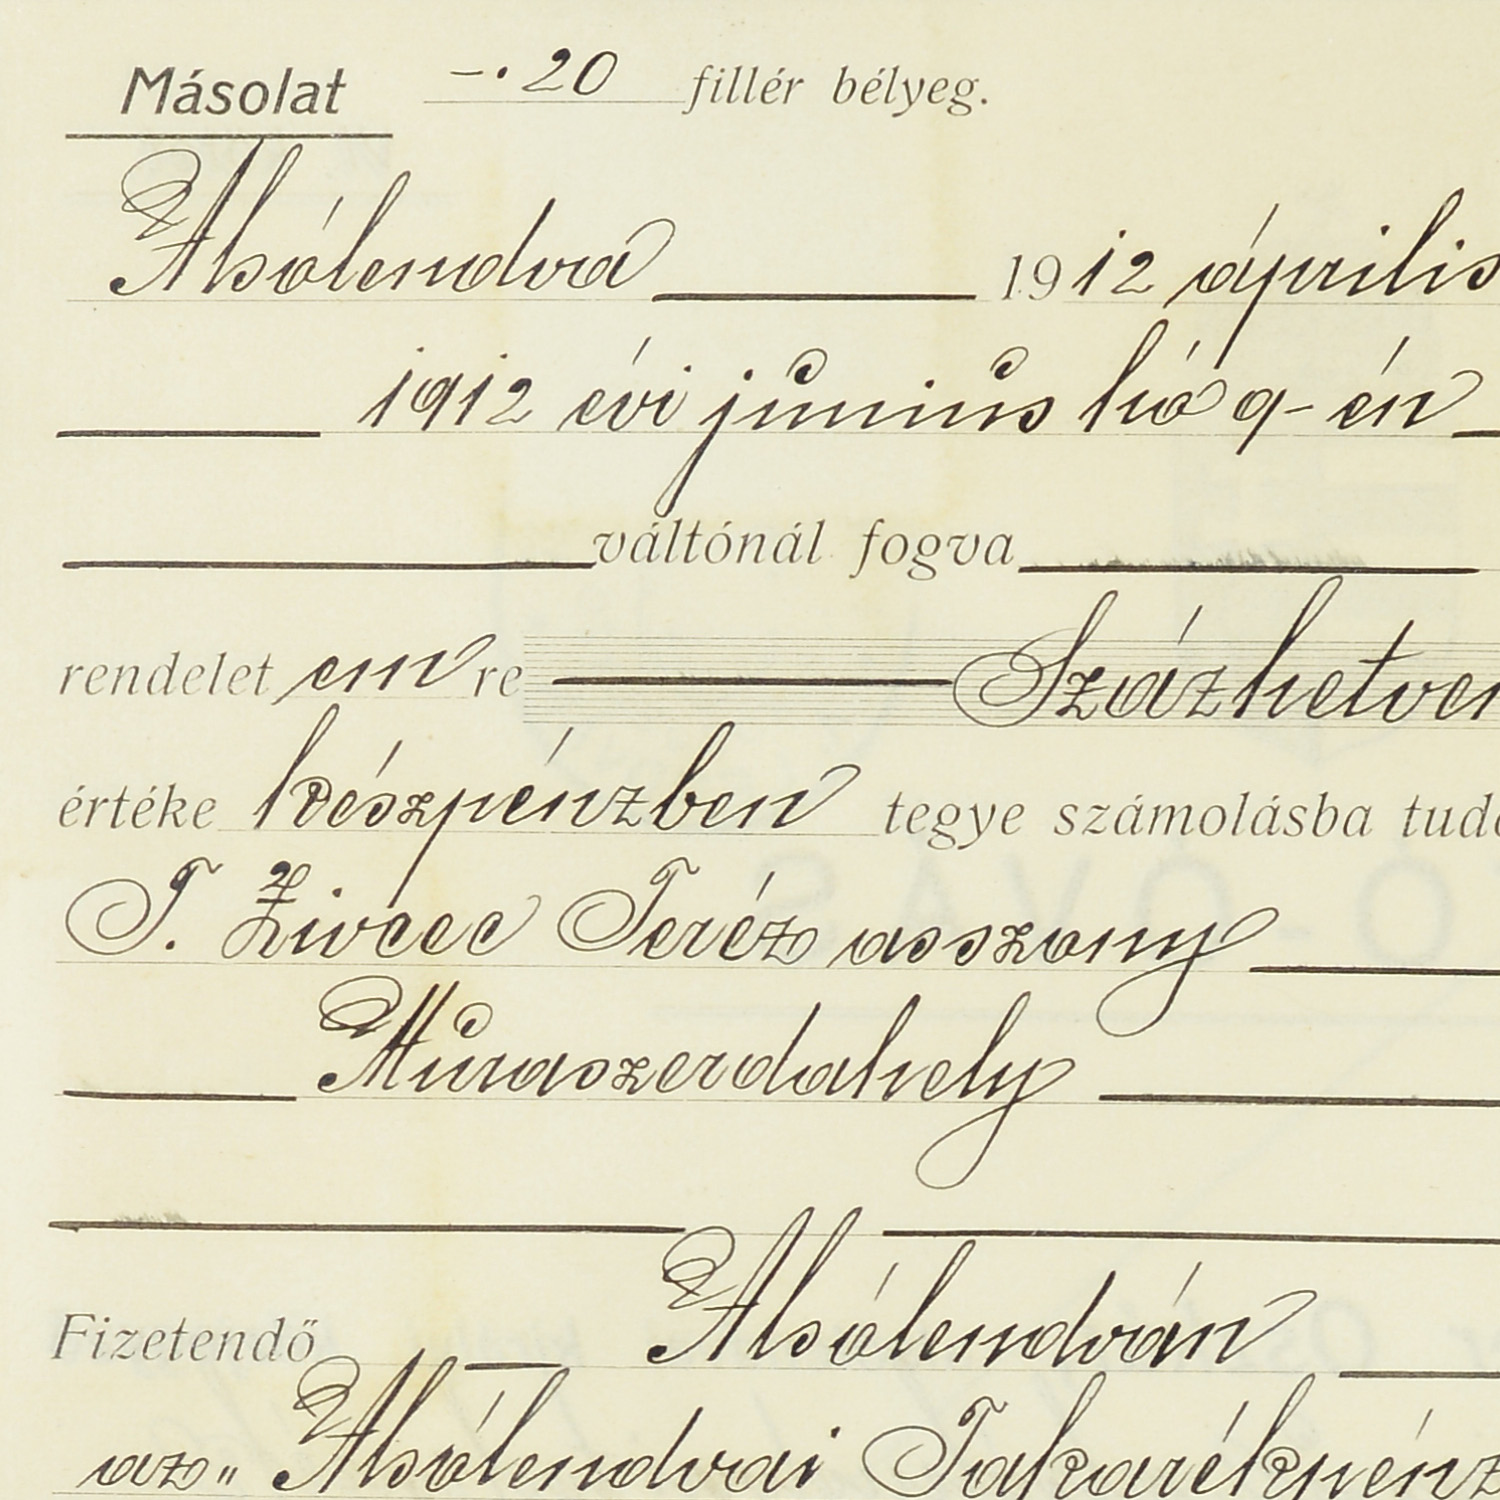 Másolat -·20 fillér bélyeg.
Alsólendva 1912 április
1912 évi június hó 9-én
váltónál fogva
rendeletemre Százhetven
értéke készpénzben tegye számolásba tudó
T. Zivcec Teréz asszony
Muraszerdahely
Fizetendő Alsólendván
az „Alsólendvai Takarékpénz